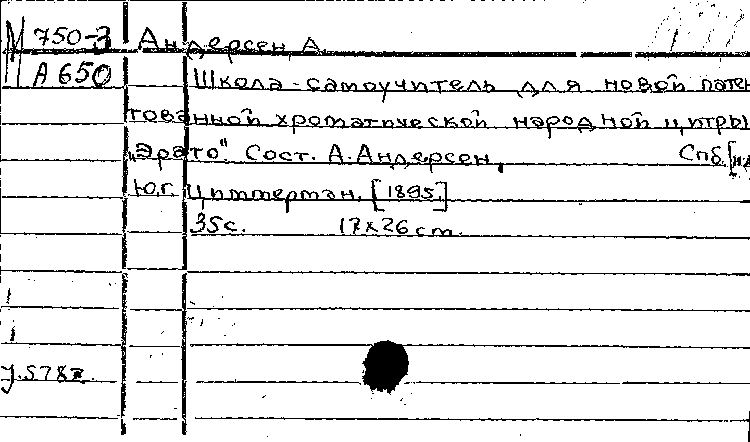 М 750-3 Андерсен, А.
А 650 Школа-самоучитель для новой патен
тованной хроматической народной цитры
„Эрато“. Сост. А. Андерсен. Спб. [
Ю.Г. Циммерман. [1895.]
35с. 17х26 cm.